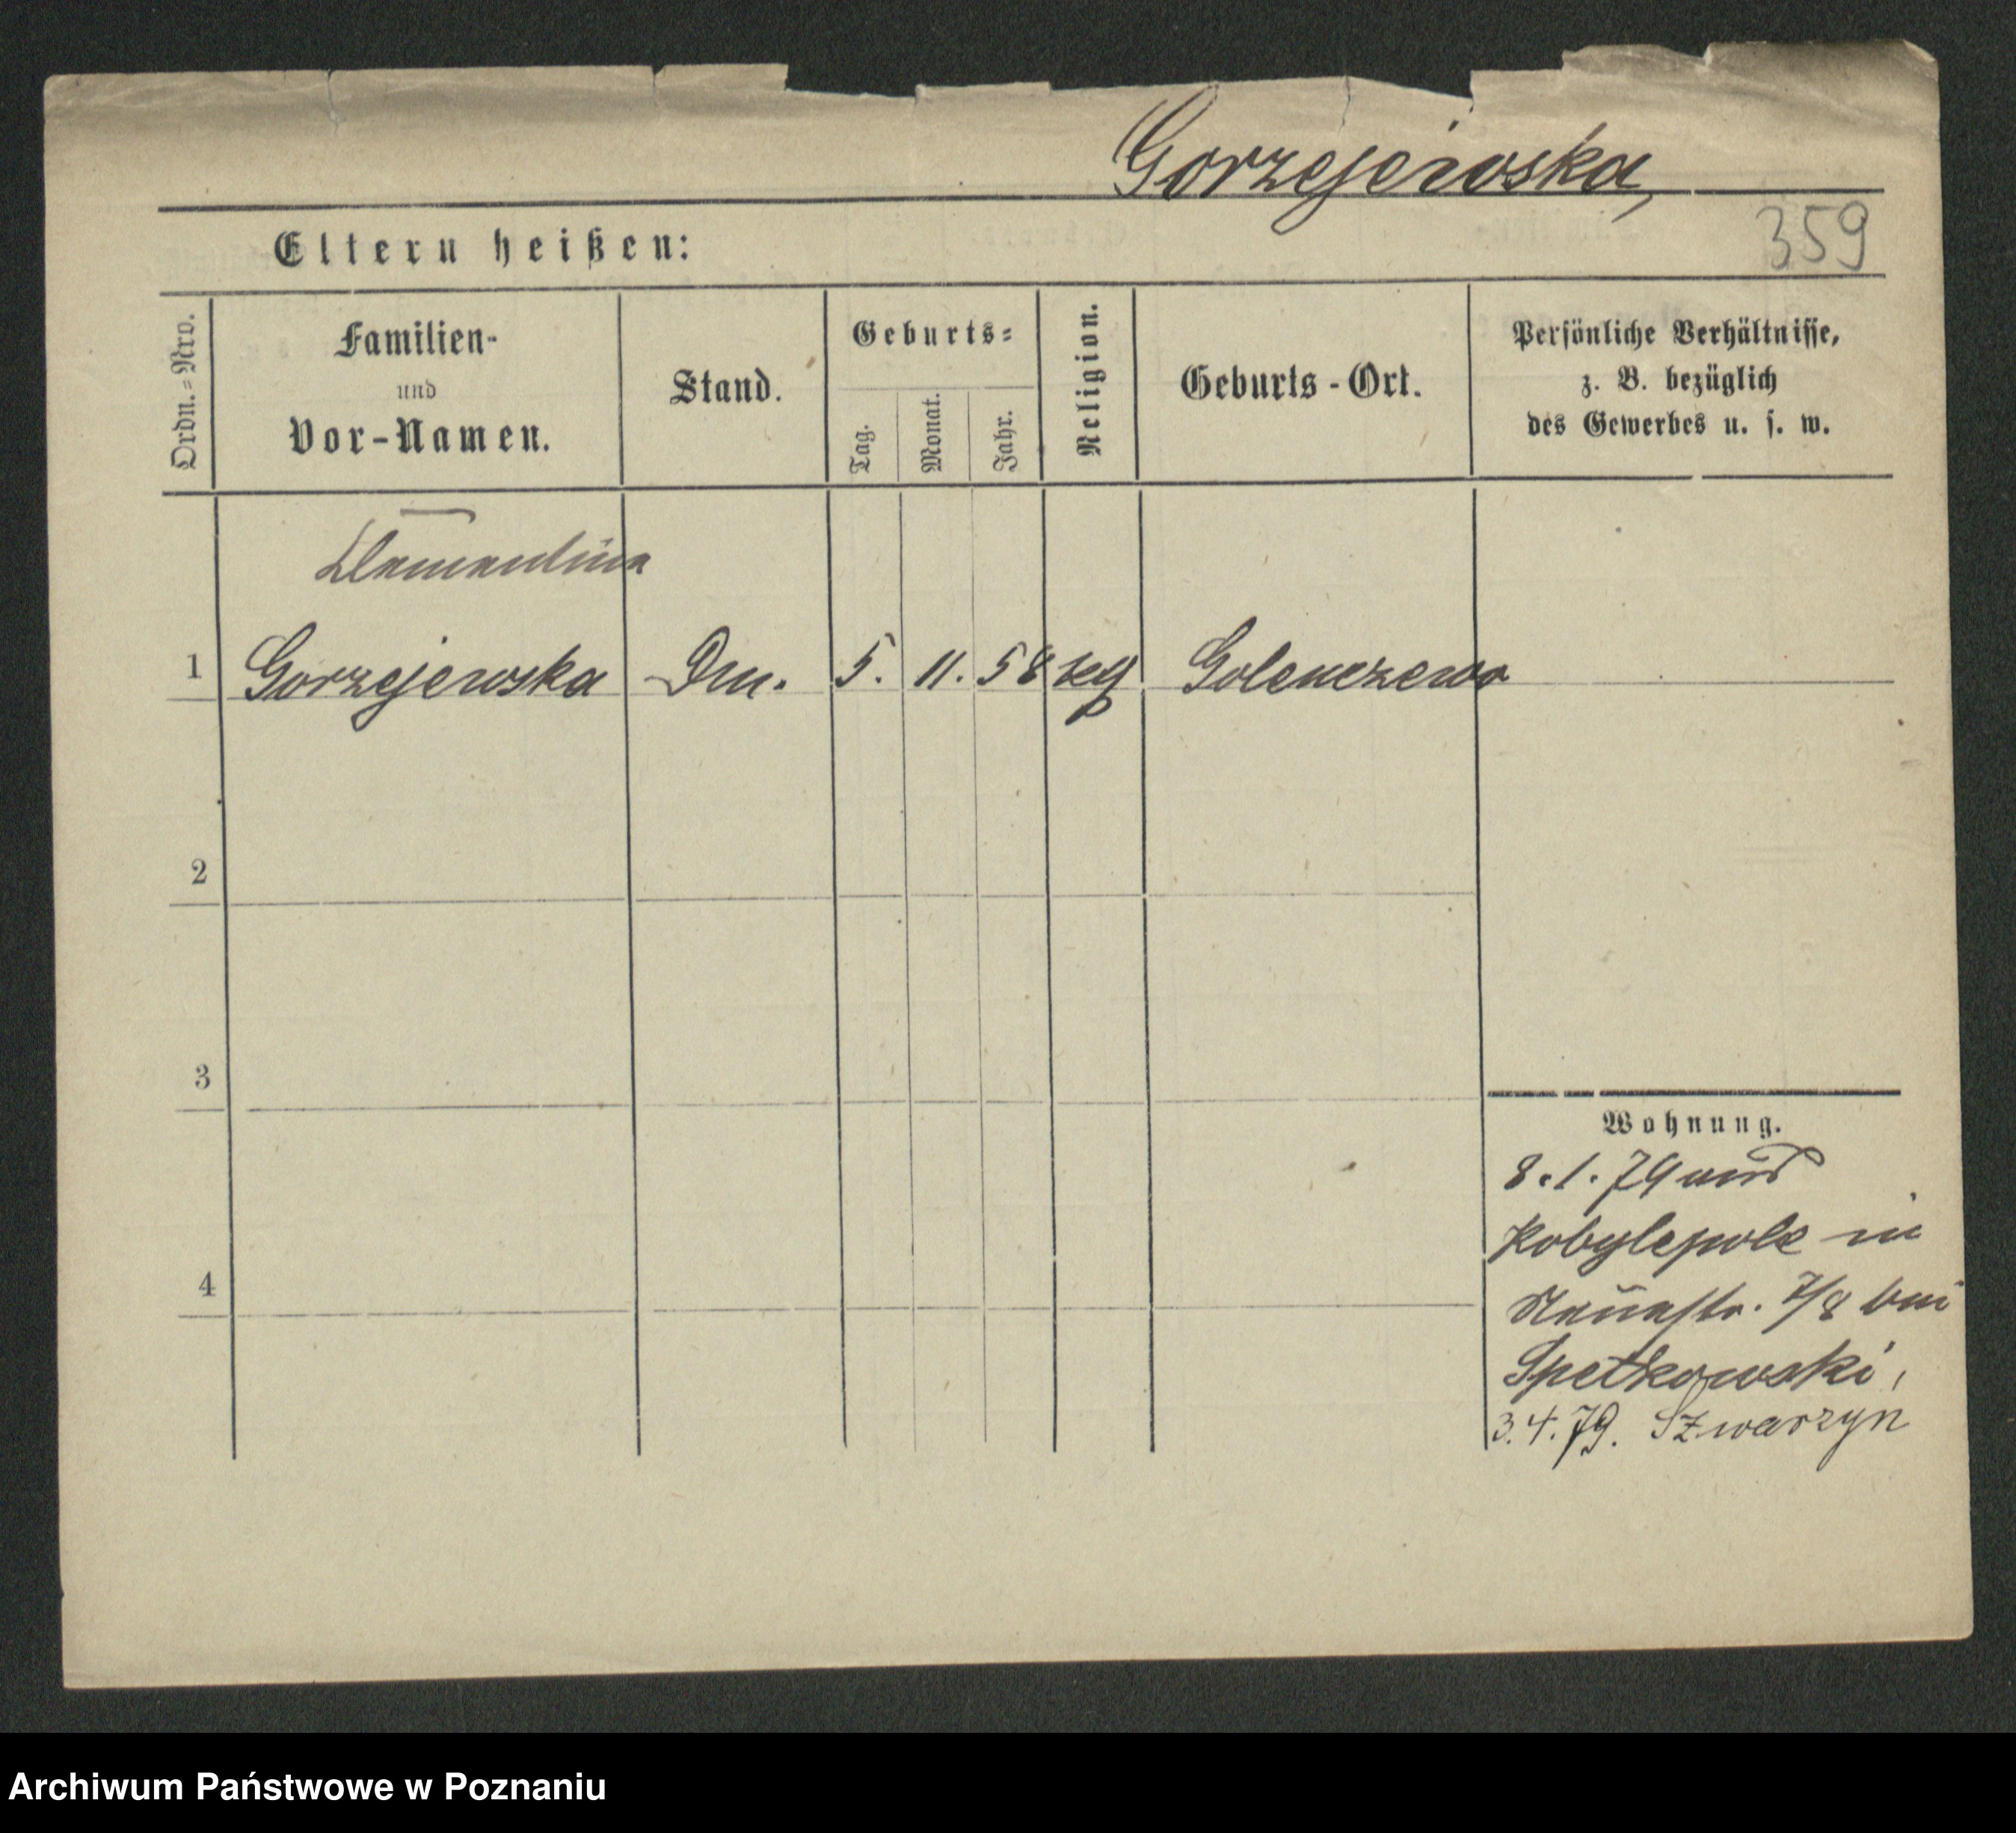 Gorzejewska,
359
Eltern heißen:
Ordn.=Nro.
Familien-
und
Vor-Namen.
Stand.
Geburts=
Tag.
Monat.
Jahr.
Religion.
Geburts-Ort.
Persönliche Verhältnisse,
z. B. bezüglich
des Gewerbes u. s. w.
Clementine
1 Gorzejewska Dm. 5. 11. 58 kth Golenczewo
2
3
4
Wohnung.
8.1.79 aus
Kobylepole in
Neuestr. 7/8 bei
Spetkowski,
3.4.79. Szwarzyn
Archiwum Państwowe w Poznaniu